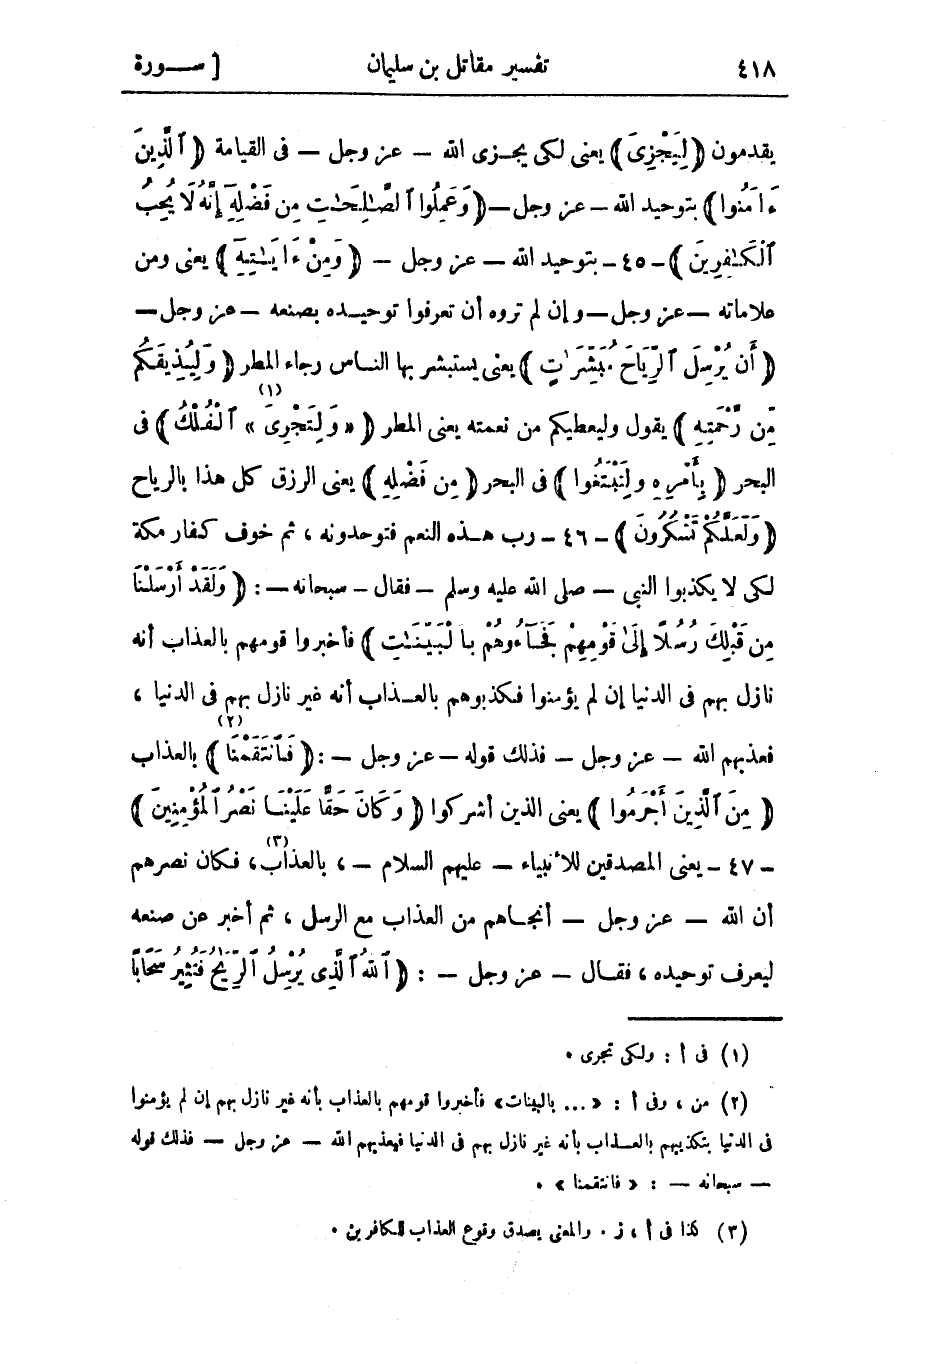 ٤١٨ تفسير مقاتل بن سليمان [ ســـورة
يقدمون ﴿ لِيَجْزِىَ ﴾ يعنى لكى يجـزى الله — عز وجل — فى القيامة ﴿ ٱلَّذِينَ
ءَامَنُوا ﴾ بتوحيد الله — عز وجل — ﴿ وَعَمِلُوا ٱلصَّـٰلِحَـٰتِ مِن فَضْلِهِۦٓ إِنَّهُۥ لَا يُحِبُّ
ٱلْكَـٰفِرِينَ ﴾ - ٤٥ - بتوحيد الله — عز وجل — ﴿ وَمِنْ ءَايَـٰتِهِۦٓ ﴾ يعنى ومن
علاماته — عز وجل — وإن لم تروه أن تعرفوا توحيـده بصنعه — عز وجل —
﴿ أَن يُرْسِلَ ٱلرِّيَاحَ مُبَشِّرَٰتٍ ﴾ يعنى يستبشر بها النـاس رجاء المطر ﴿ وَلِيُذِيقَكُم
مِّن رَّحْمَتِهِۦ ﴾ يقول وليعطيكم من نعمته يعنى المطر ﴿ « وَلِتَجْرِىَ » (١) ٱلْفُلْكُ ﴾ فى
البحر ﴿ بِأَمْرِهِۦ وَلِتَبْتَغُوا ﴾ فى البحر ﴿ مِن فَضْلِهِۦ ﴾ يعنى الرزق كل هذا بالرياح
﴿ وَلَعَلَّكُمْ تَشْكُرُونَ ﴾ - ٤٦ - رب هـذه النعم فتوحدونه ، ثم خوف كفار مكة
لكى لا يكذبوا النبى — صلى الله عليه وسلم — فقال — سبحانه — : ﴿ وَلَقَدْ أَرْسَلْنَا
مِن قَبْلِكَ رُسُلًا إِلَىٰ قَوْمِهِمْ فَجَآءُوهُمْ بِالْبَيِّنَـٰتِ ﴾ فأخبروا قومهم بالعذاب أنه
نازل بهم فى الدنيا إن لم يؤمنوا فكذبوهم بالعـذاب أنه غير نازل بهم فى الدنيا ،
فعذبهم الله — عز وجل — فذلك قوله — عز وجل — : ﴿ فَٱنتَقَمْنَا ﴾ (٢) بالعذاب
﴿ مِنَ ٱلَّذِينَ أَجْرَمُوا ﴾ يعنى الذين أشركوا ﴿ وَكَانَ حَقًّا عَلَيْنَـا نَصْرُ ٱلْمُؤْمِنِينَ ﴾
- ٤٧ - يعنى المصدقين للأنبياء — عليهم السلام — ، بالعذاب (٣) ، فكان نصرهم
أن الله — عز وجل — أنجـاهم من العذاب مع الرسل ، ثم أخبر عن صنعه
ليعرف توحيده ، فقـال — عز وجل — : ﴿ ٱللَّهُ ٱلَّذِى يُرْسِلُ ٱلرِّيَـٰحَ فَتُثِيرُ سَحَابًا
(١) فى أ : ولكى تجرى .
(٢) من ، وفى أ : « ... بالبينات» فأخبروا قومهم بالعذاب بأنه غير نازل بهم إن لم يؤمنوا
فى الدنيا بتكذيبهم بالعـذاب بأنه غير نازل بهم فى الدنيا فيعذبهم الله — عز وجل — فذلك قوله
— سبحانه — : « فانتقمنا » .
(٣) كذا فى أ ، ز . والمعنى يصدق وقوع العذاب للكافرين .